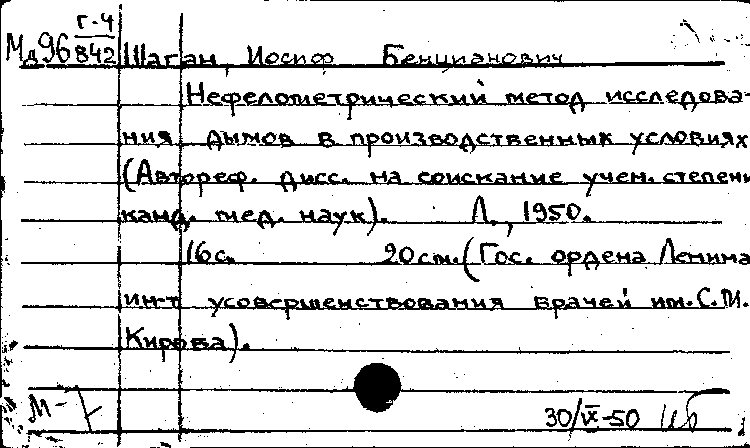 Г-4
Мд96 842 Шаган, Иосиф Бенцианович
Нефелометрический метод исследова-
ния дымов в производственных условиях
(Автореф. дисс. на соискание учен. степени
канд. мед. наук). Л., 1950.
16с. 20см. (Гос. ордена Ленина
ин-т усовершенствования врачей им. С.М.
Кирова).
М-
30/IX-50